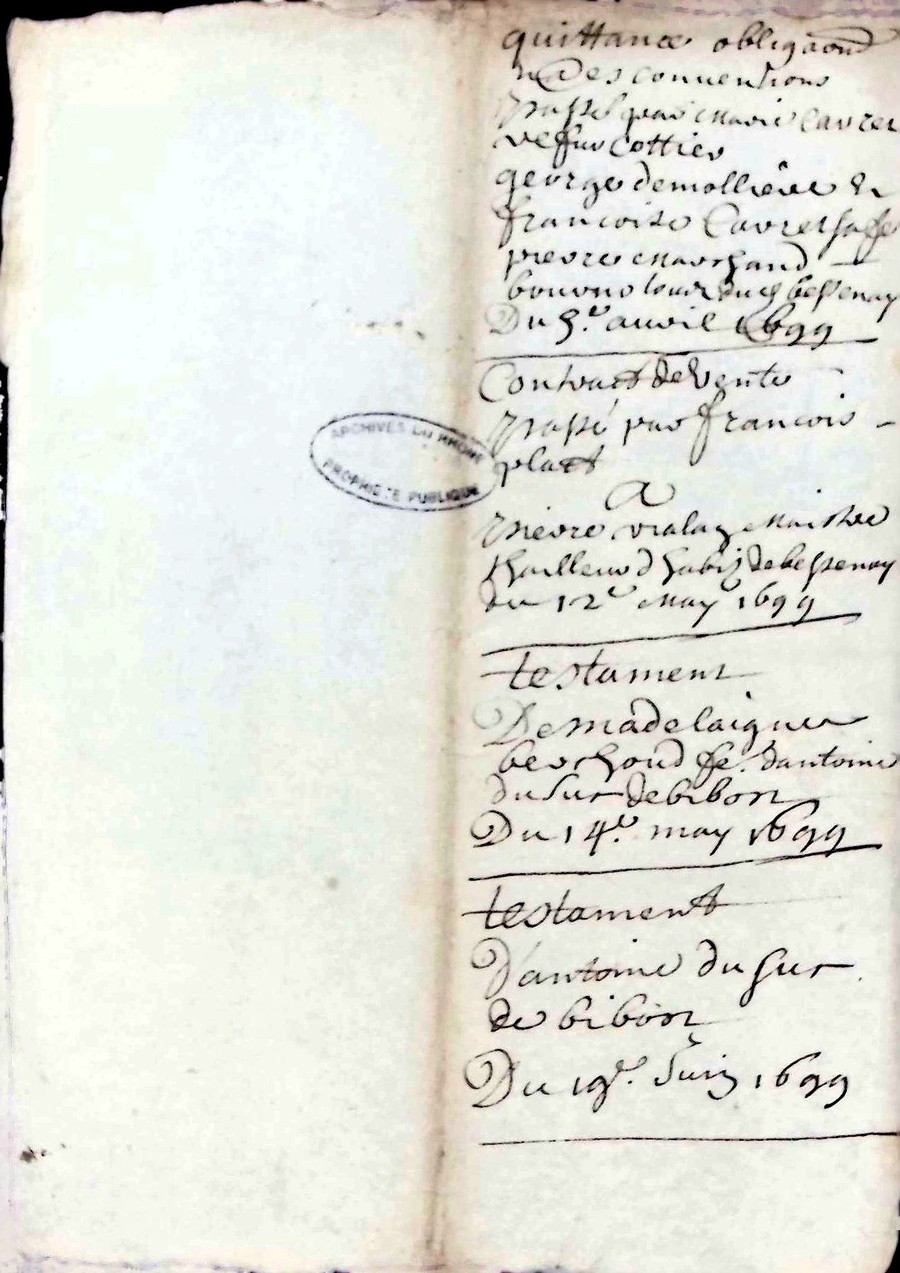 quittance obligaond
des conventions
passé par Marie
vefve Cottier
george demolliére &
francoise
pierre Marchand
du 5e. avril 1699
Contract de Vente
Passé par francois
platt
A
pierre vialay Maistre
thailleur d habis de bessenay
du 12e May 1699
testament
De madelaigne
berchoud fe. dantoine
du suc de bibost
Du 14e. may 1699
testament
D'antoine du suc
de bibost
Du 19e. Juin 1699
ARCHIVES DU RHONE
PROPRIETE PUBLIQUE